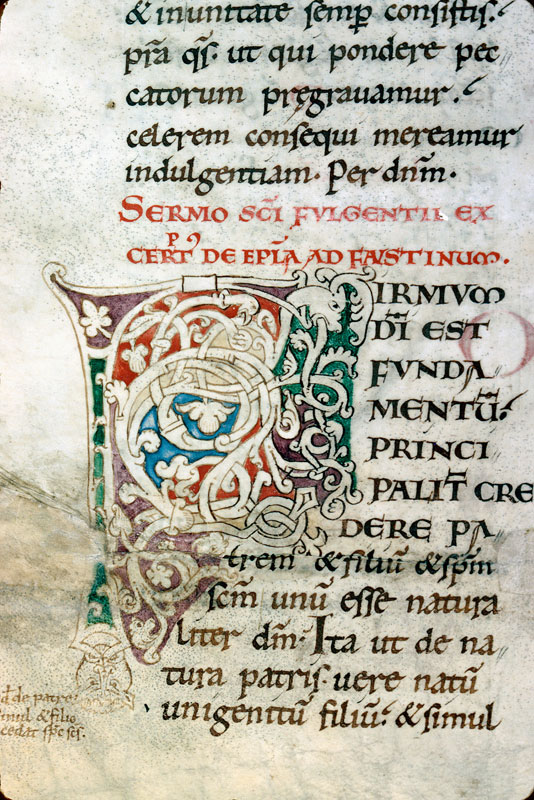 & inunitate semp consistis.
pra qs. ut qui pondere pec
catorum pręgravamur.
celerem consequi mereamur
indulgentiam. Per dnm.
SERMO SCI FVLGENTII EX
CERPT DE EPLA AD FAVSTINUM.
FIRMVM
DI EST
FVNDA
MENTŪ.
PRINCI
PALIT CRE
DERE PA
trem & filiū & spm
scm unū esse natura
liter dm. Ita ut de na
tura patris vere natū
unigenitū filiū. & simul
d de patre
simul & filio
cedat sps scs.